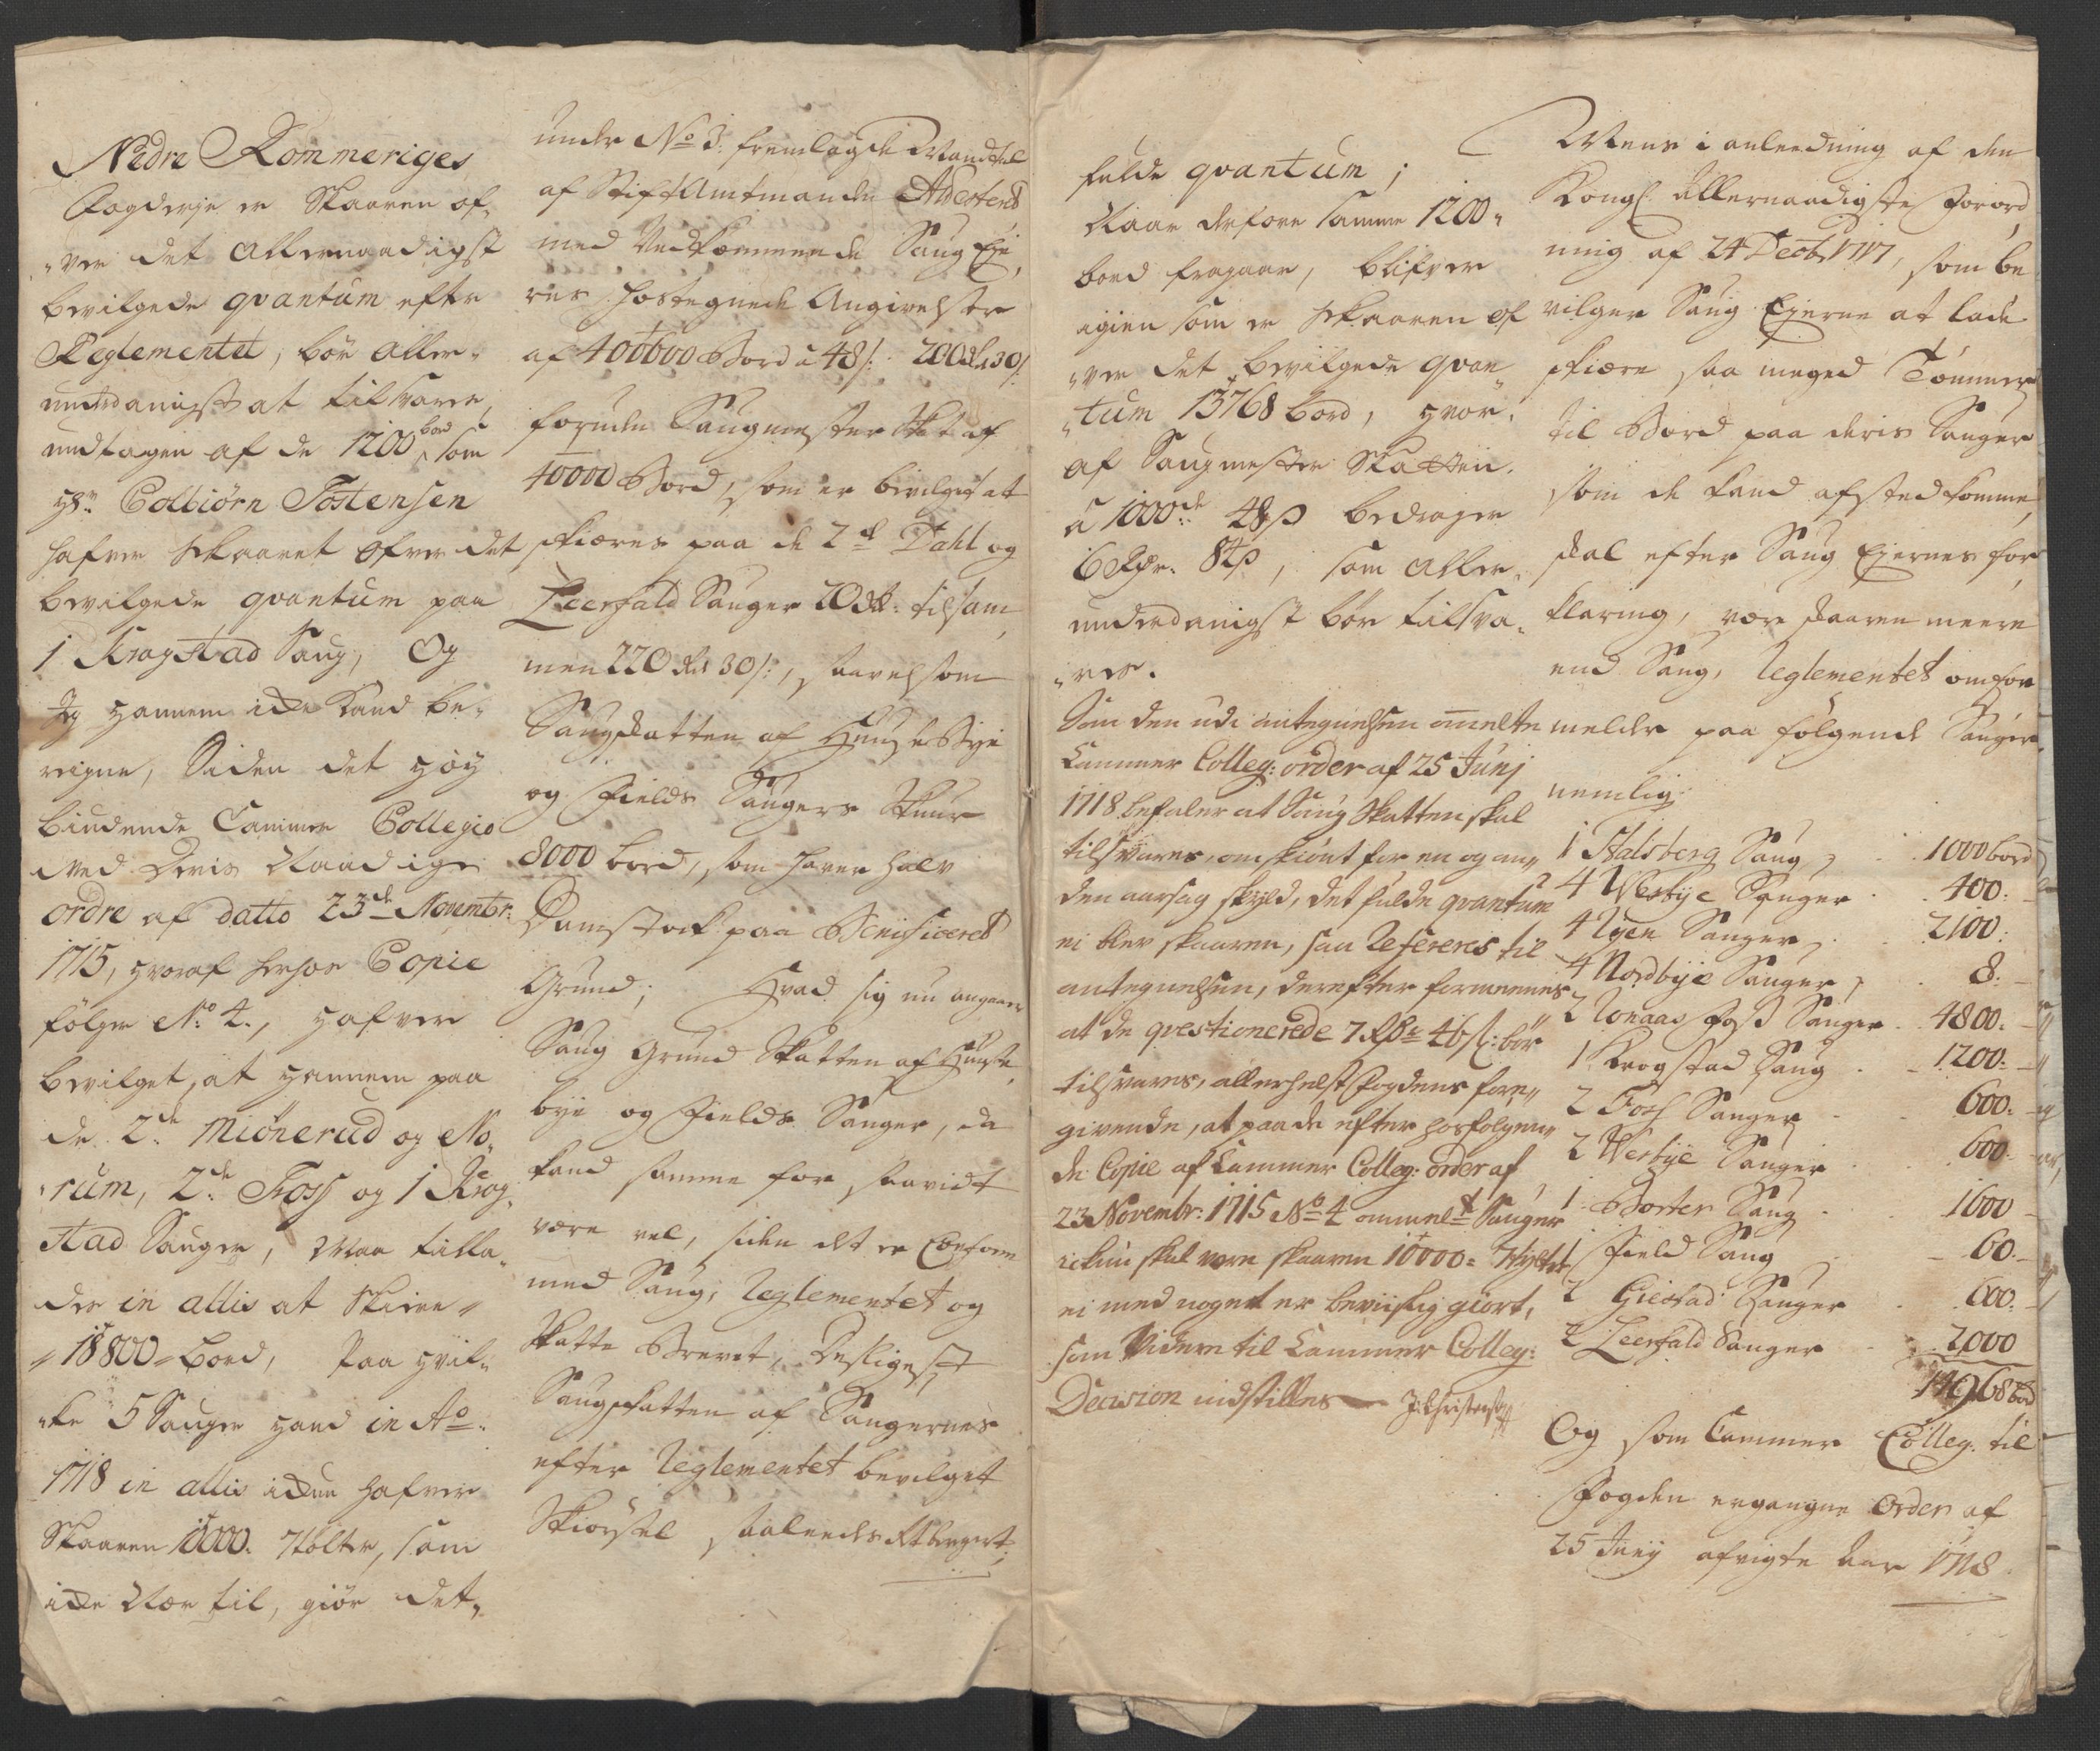 Nedre Rommeriges
Fogderje er Skaaren of,
"ver det allernaadigst
bevilgede qvantum efter
Reglementet, bør aller,
underdanigst at tilsvares,
undtagen af de 1200 bord, som
Hr. Colbiørn Tostensen
hafver skaaret ofver det
bevilgede qvantum paa
1 Kragstad Saug, Og
Jeg hannem icke kand be,
reigne, Siden det høy
biudende Cammer Collegio
ved Deris Naadige
ordre af datto 23de Novembr:
1715, hvoraf herhos Copie
følger No. 4., hafver
bevilget, at hannem paa
de 2de Miønerud og No,
"rum, 2de Foss og 1 Krog,
stad Sauger, Maa tilla,
des in allis at Skiere
"18800" bord, Paa hvil,
"ke 5 Sauger hand in Ao.
1718 in allis icke hafver
Skaaren 10000. Tylter, som
icke Nær til, giør det,
under No 3. fremlagde Mandtal
af Stiftamtmanden Attesteret
med Vedkommende Saug Eje,
res hostegnede Angivelser
af 400600 Bord à 48 s: 200 dr 30 s
foruden Saugmester Skat af
40000 Bord, som er bevilget at
skieres paa de 2de Dahl og
Leerfald Sauger 20 dr: tilsam,
men 220 dr 30 s:, saavelsom
Saugskatten af Huusebye
og Fields Saugers Skuur
8000 bord, som haver halv
Damstock paa Beneficeret
Grund; Hvad sig nu angaaer
Saug Grund Skatten af Huuse,
bye og Fields Sauger, da
kand samme for saavidt
være vel, siden det er Conform
med Saug, Reglementet og
Skatte Brevet, Desligest
Saugskatten af Saugernes
efter Reglementet bevilget
Skiørsel, saaleedes beregnet;
fulde qvantum;
Naar derfore samme 1200"
bord fragaar, blifver
igien som er skaaren of
"ver det bevilgede qvan
"tum 13768 bord, hvor,
af Saugmester Skatten
à 1000de 48 s bedrager
6 Rdr. 84 s, som aller,
underdanigst bør tilsva,
"res.
Som den udi antegnelsen ommelte
Cammer Colleg: order af 25 Junj
1718 befaler at Saug Skatten skal
tilsvares, omskiønt for en og an,,
den aarsag skyld, det fulde qvantum
ei blev skaaren, saa Refereres til
antegnelsen, derefter formeenes
at de qvestionerede 7 Rdr 46 s: bør
tilsvares, allerhelst Fogdens fore,,
givende, at paa de efter hosfølgen,,
de Copie af Cammer Colleg: order af
23 Novembr: 1715 No 4 ommelte Sauger
ickun skal være skaaren 10000: Tylter
ei med noget er beviislig giort,
som Videre til Cammer Colleg:
Decision indstilles J: Christensen
Mens i anleedning af den
Kongl. Allernaadigste Forord,
ning af 24 Decbr 1717, som be
vilger Saug Ejerne at lade
skiere saa meged Tømmer
til Bord paa deris Sauger
som de kand afsted komme,
skal efter Saug Ejernes for,
klaring, være skaaren meere
end Saug, Reglementet omfor
melder paa følgende Sauger
nemlig.
1 Stalsberg Saug 1000 bord
4 Westbye Sauger 400:
4 Ryen Sauger 2100:
4 Nordbye Sauger 8:
2 Ronaas Foss Sauger 4800:
1 Krogstad Saug 1200:
2 Foss Sauger 600:
2 Westbye Sauger 600:
1 Borter Saug 1600
1 Field Saug 60
2 Giestad Sauger 600:
2 Leerfald Sauger 2000
14968 bord
Og som Cammer Colleg. til
Fogden ergangne Order af
25 Junij afvigte Aar 1718